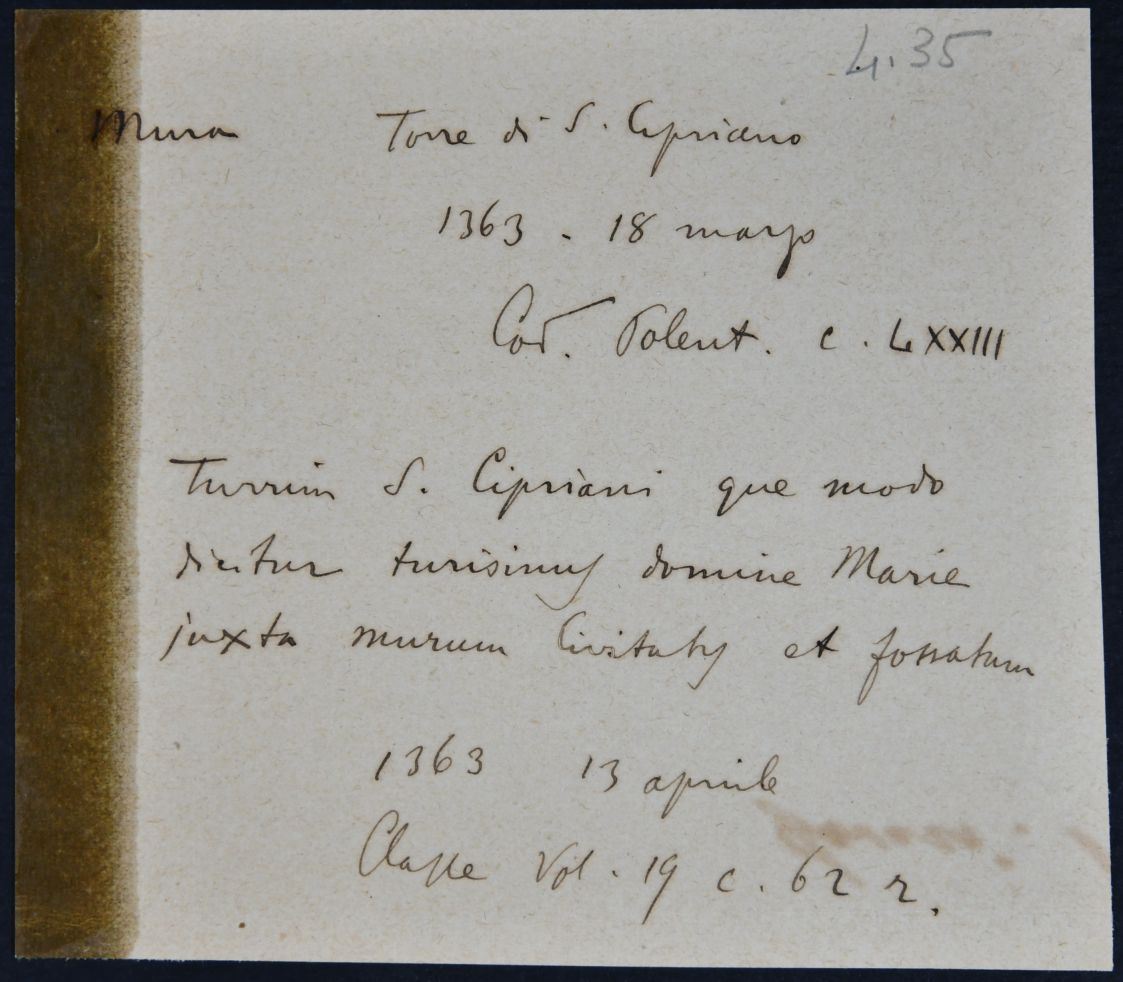 4.35
Mura Torre di S. Cipriano
1363 - 18 marzo
Cod. Polent. c. LXXIII
Turrim S. Cipriani que modo
dicitur domine Marie
juxta murum Civitatis et fossatum
1363 13 aprile
Classe Vol. 19 c. 62 r.